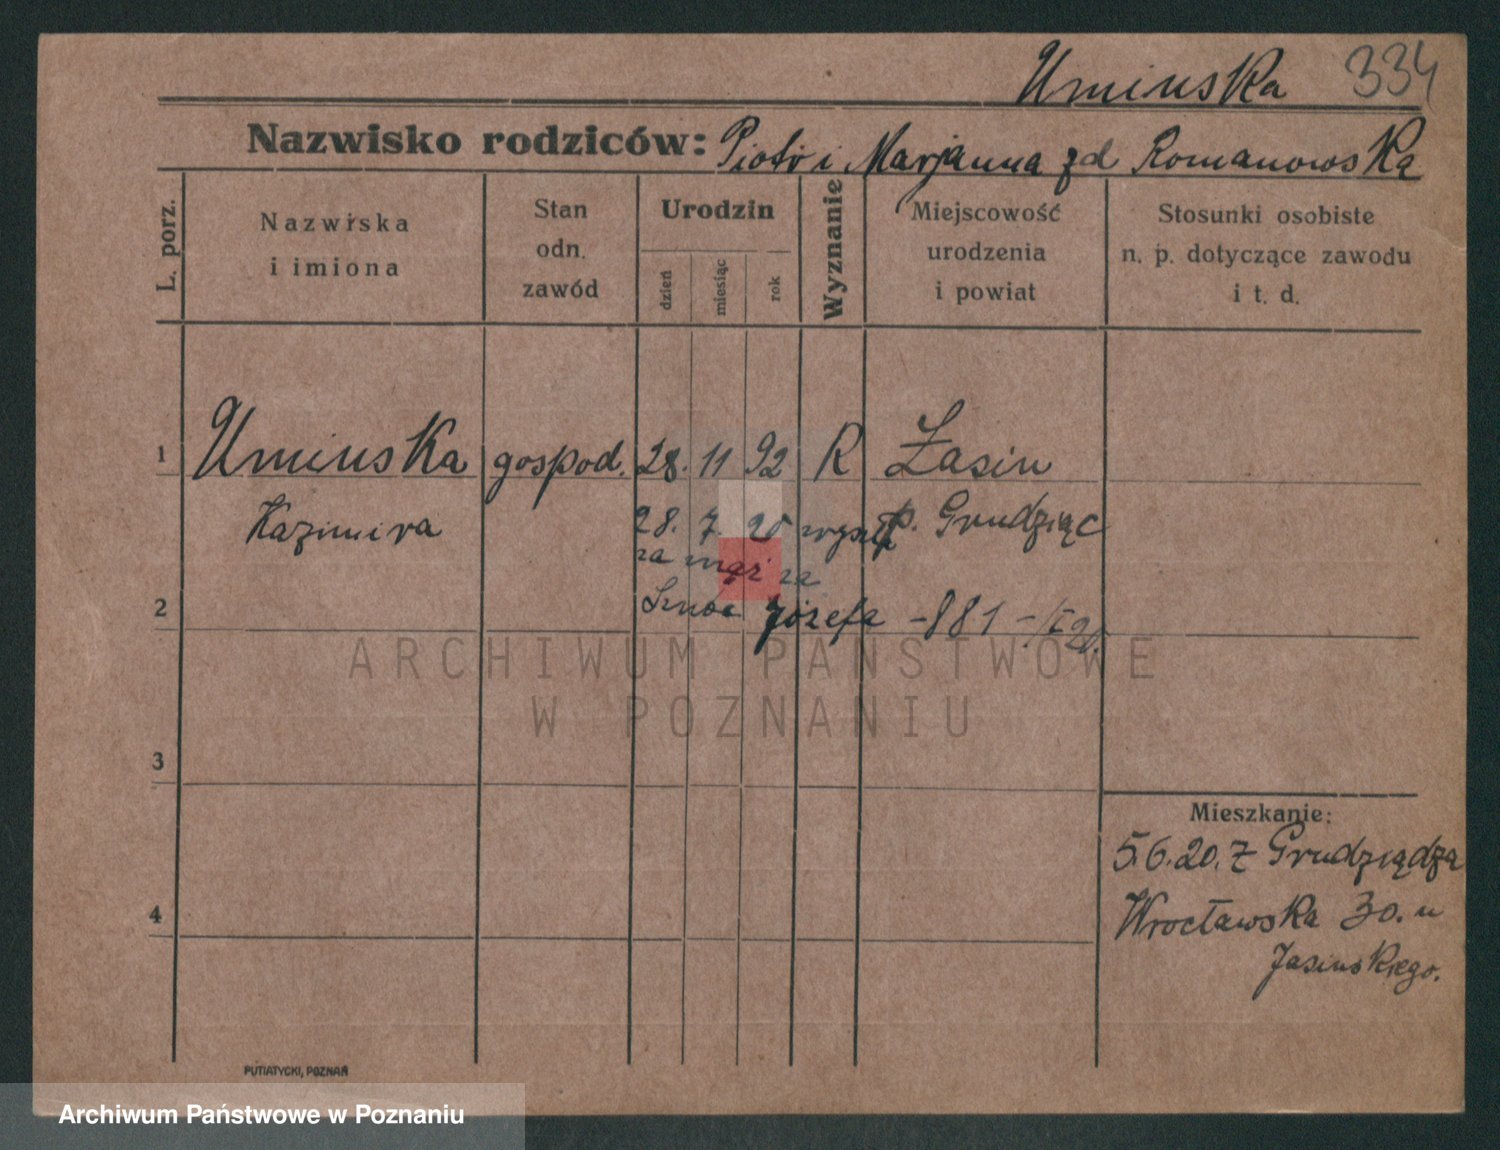 Uminska 334
Nazwisko rodziców: Piotr i Marjanna zd Romanowska
L. porz.
Nazwiska
i imiona
Stan
odn.
zawód
Urodzin
dzień
miesiąc
rok
Wyznanie
Miejscowość
urodzenia
i powiat
Stosunki osobiste
n. p. dotyczące zawodu
i t. d.
1 Uminska gospod. 28. 11 92 R Łasin
Kazimira
p. Grudziąc
28. 7. 20 wyszła
za mąż za
2 Józefa -881-
3
Mieszkanie:
5.6.20. Z Grudziądza
4 Wrocławska 30. u
Jasinskiego.
PUTIATYCKI, POZNAŃ
ARCHIWUM PAŃSTWOWE
W POZNANIU
Archiwum Państwowe w Poznaniu